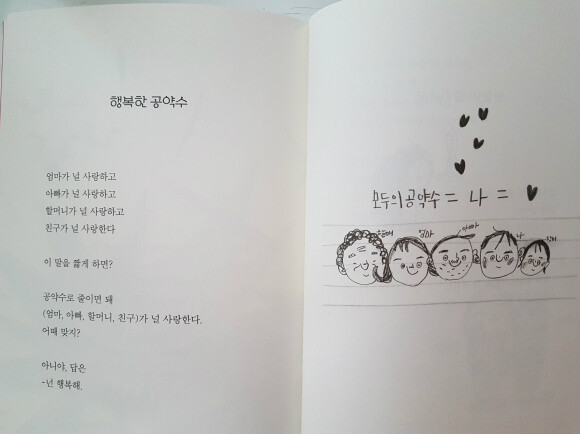 행복한 공약수
엄마가 널 사랑하고
아빠가 널 사랑하고
할머니가 널 사랑하고
친구가 널 사랑한다
이 말을 짧게 하면?
공약수로 줄이면 돼
(엄마, 아빠, 할머니, 친구)가 널 사랑한다.
어때 맞지?
아니야, 답은
-넌 행복해.
모두의 공약수 = 나 =
엄마
아빠
나